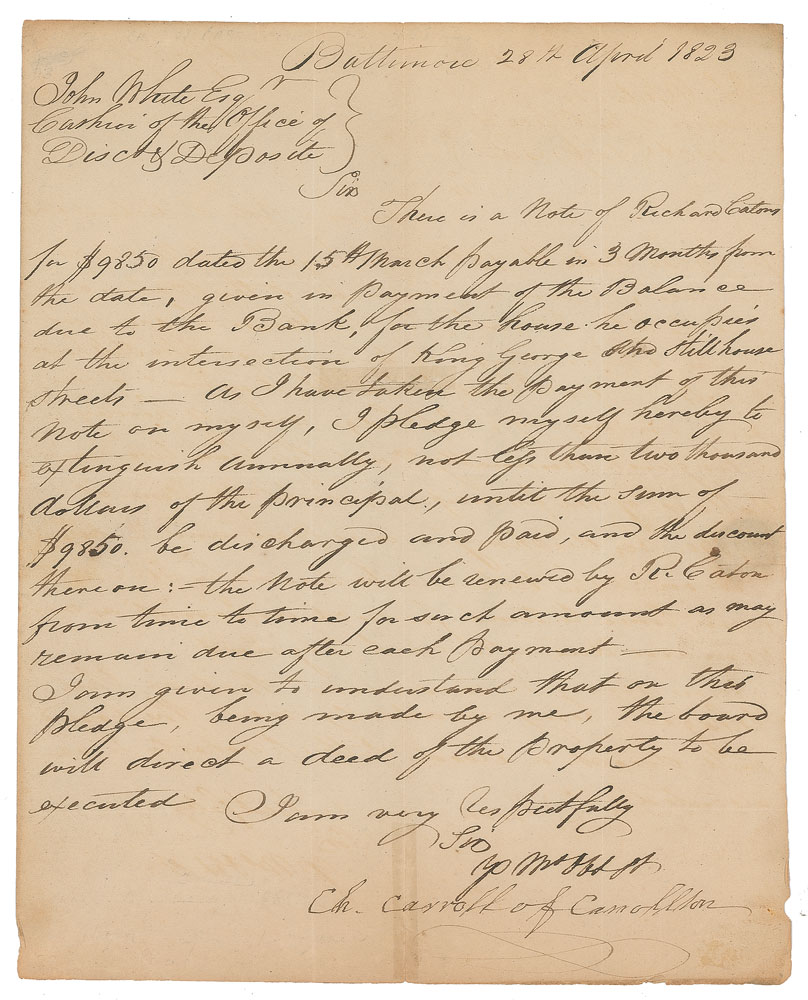 Baltimore 28th April 1823
John White Esqr
Cashier of the Office of
Disct & Deposite
Sir
There is a Note of Richard Catons
for $9850 dated the 15th March payable in 3 Months from
the date, given in payment of the Balance
due to the Bank, for the house he occupies
at the intersection of King George and Still house
streets — As I have taken the payment of this
Note on myself, I pledge myself hereby to
extinguish annually, not less than two thousand
dollars of the principal, until the sum of
$9850. be discharged and paid, and the discount
thereon: – the Note will be renewed by R. Caton
from time to time for such amount as may
remain due after each payment —
I am given to understand that on this
pledge, being made by me, the board
will direct a deed of the property to be
executed
I am very respectfully
Sir
Yr Mo Obd St
Ch. Carroll of Carrollton